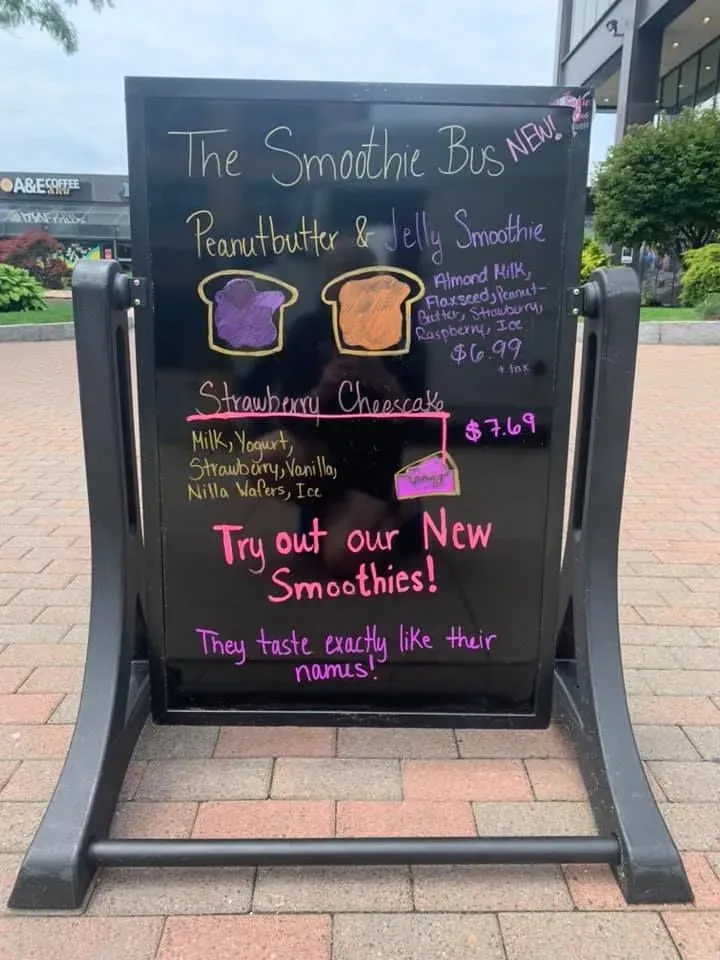 The Smoothie Bus NEW!
Peanutbutter & Jelly Smoothie
Almond Milk,
Flaxseed, Peanut-
Butter, Strawburry,
Raspberry, Ice
$6.99
+ tax
Strawberry Cheescake
$7.69
Milk, Yogurt,
Strawburry, Vanilla,
Nilla Wafers, Ice
Try out our New
Smoothies!
They taste exactly like their
names!
A&E COFFEE
& tea